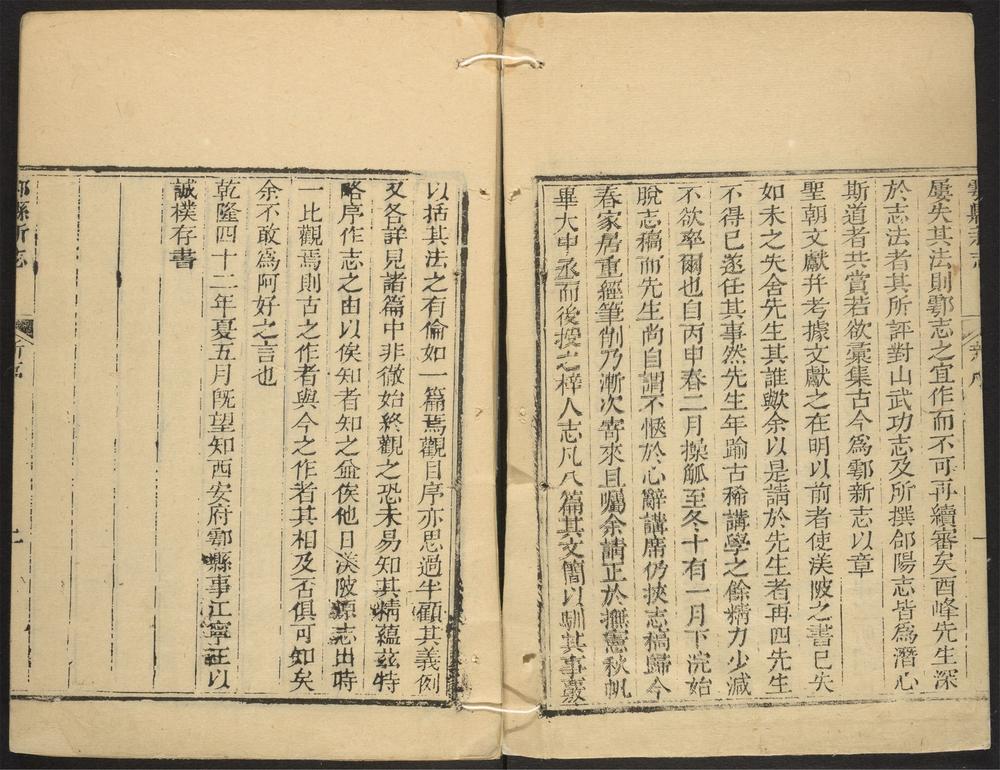 鄠縣新志
屢失其法則鄠志之宜作而不可再續審矣酉峰先生深
於志法者其所評對山武功志及所撰郃陽志皆爲潛心
斯道者共賞若欲彙集古今爲鄠新志以章
聖朝文獻并考據文獻之在明以前者使渼陂之書已失
如未之失舍先生其誰歟余以是請於先生者再四先生
不得已遂任其事然先生年踰古稀講學之餘精力少減
不欲率爾也自丙申春二月操觚至冬十有一月下浣始
脫志稿而先生尚自謂不愜於心辭講席仍挾志稿歸今
春家居重經筆削乃漸次寄來且囑余請正於撫憲秋帆
畢大中丞而後授之梓人志凡八篇其文簡以馴其事覈
以括其法之有倫如一篇焉觀目序亦思過半顧其義例
又各詳見諸篇中非徹始終觀之恐未易知其精蘊茲特
略序作志之由以俟知者知之並俟他日渼陂原志出時
一比觀焉則古之作者與今之作者其相及否俱可知矣
余不敢爲阿好之言也
乾隆四十二年夏五月既望知西安府鄠縣事江寧汪以
誠樸存書
鄠縣新志
新序